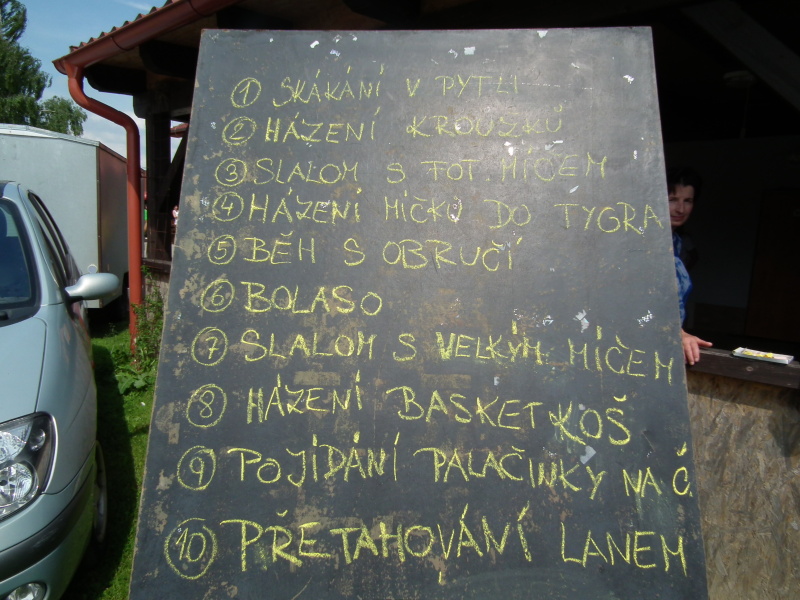 ① SKÁKÁNÍ V PYTLI
② HÁZENÍ KROUŽKŮ
③ SLALOM S FOT. MÍČEM
④ HÁZENÍ MÍČKŮ DO TYGRA
⑤ BĚH S OBRUČÍ
⑥ BOLASO
⑦ SLALOM S VELKÝM MÍČEM
⑧ HÁZENÍ BASKETKOŠ
⑨ POJÍDÁNÍ PALAČINKY NA Č.
⑩ PŘETAHOVÁNÍ LANEM